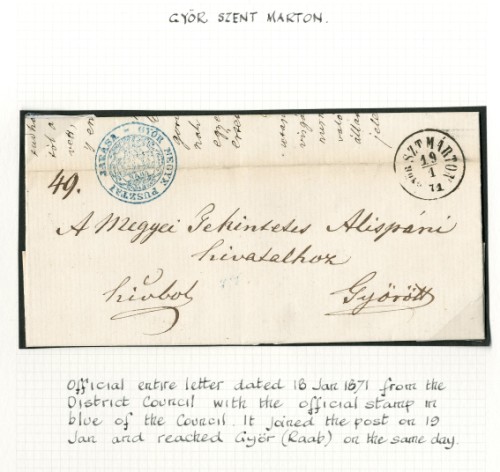 GYÖR SZENT MARTON.
GYŐR MEGYE PUSZTAI JÁRÁSA
GYŐR SZT MÁRTON
19
1
71
49.
A Megyei Tekintetes Alispáni
hivatalhoz
hivból
Györött
Official entire letter dated 18 Jan 1871 from the
District Council with the official stamp in
blue of the Council. It joined the post on 19
Jan and reached Györ (Raab) on the same day.